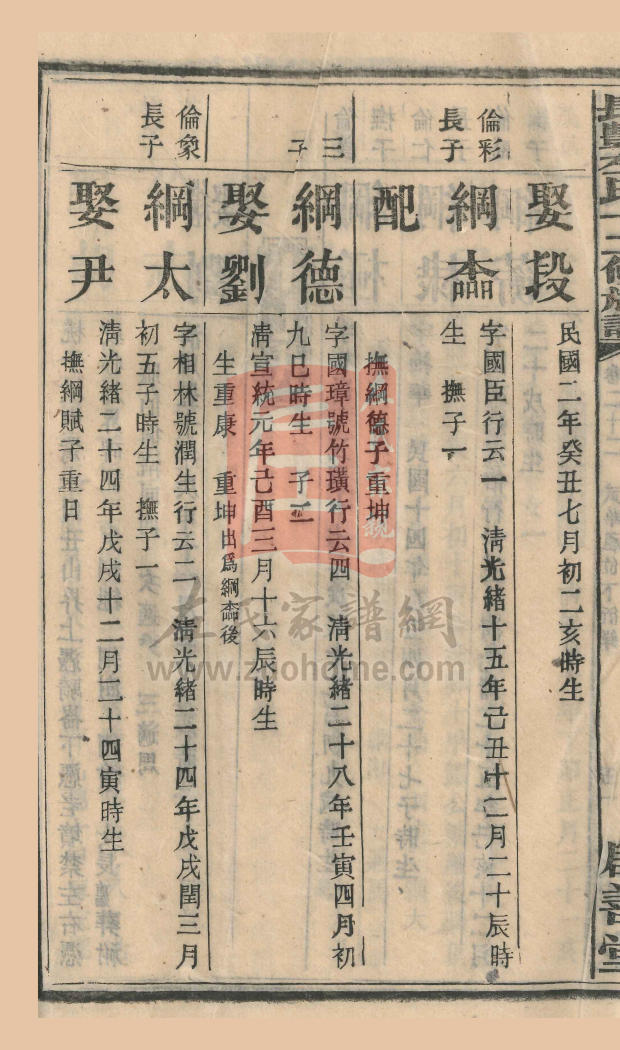 娶段 民國二年癸丑七月初二亥時生
倫彩長子 綱 字國臣行云一 清光緒十五年己丑十二月二十辰時
配 生 撫子一
撫綱德子重坤
三子 綱德 字國璋號竹璜行云四 清光緒二十八年壬寅四月初
九巳時生 子二
娶劉 清宣統元年己酉三月十六辰時生
生重康 重坤出為綱後
倫象長子 綱太 字相林號潤生行云二 清光緒二十四年戊戌閏三月
初五子時生 撫子一
娶尹 清光緒二十四年戊戌十二月二十四寅時生
撫綱賦子重日
www.zsohome.com
家譜網